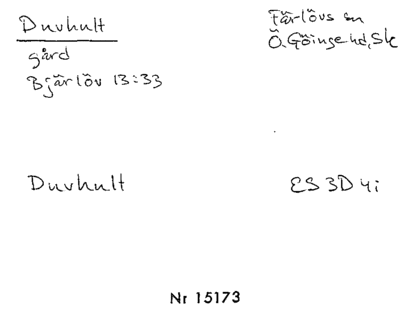 Duvhult
gård
Bjärlöv 13:33
Färlövs sn
Ö. Göinge hd, Sk
Duvhult
ES 3D 4i
Nr 15173